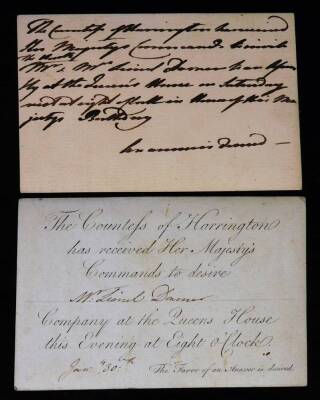 The Countess of Harrington has received
Her Majestys Commands to invite
Mr & Mrs Lionel Damer
at the Queens House on Saturday
next at eight o'Clock in Honor of Her Ma
jestys Birthday
An answer is desired
The Countess of Harrington
has received Her Majesty's
Commands to desire
Mr. Lionel Damer
Company at the Queens House
this Evening at Eight O'Clock.
Jany. 30th. The Favor of an Answer is desired.